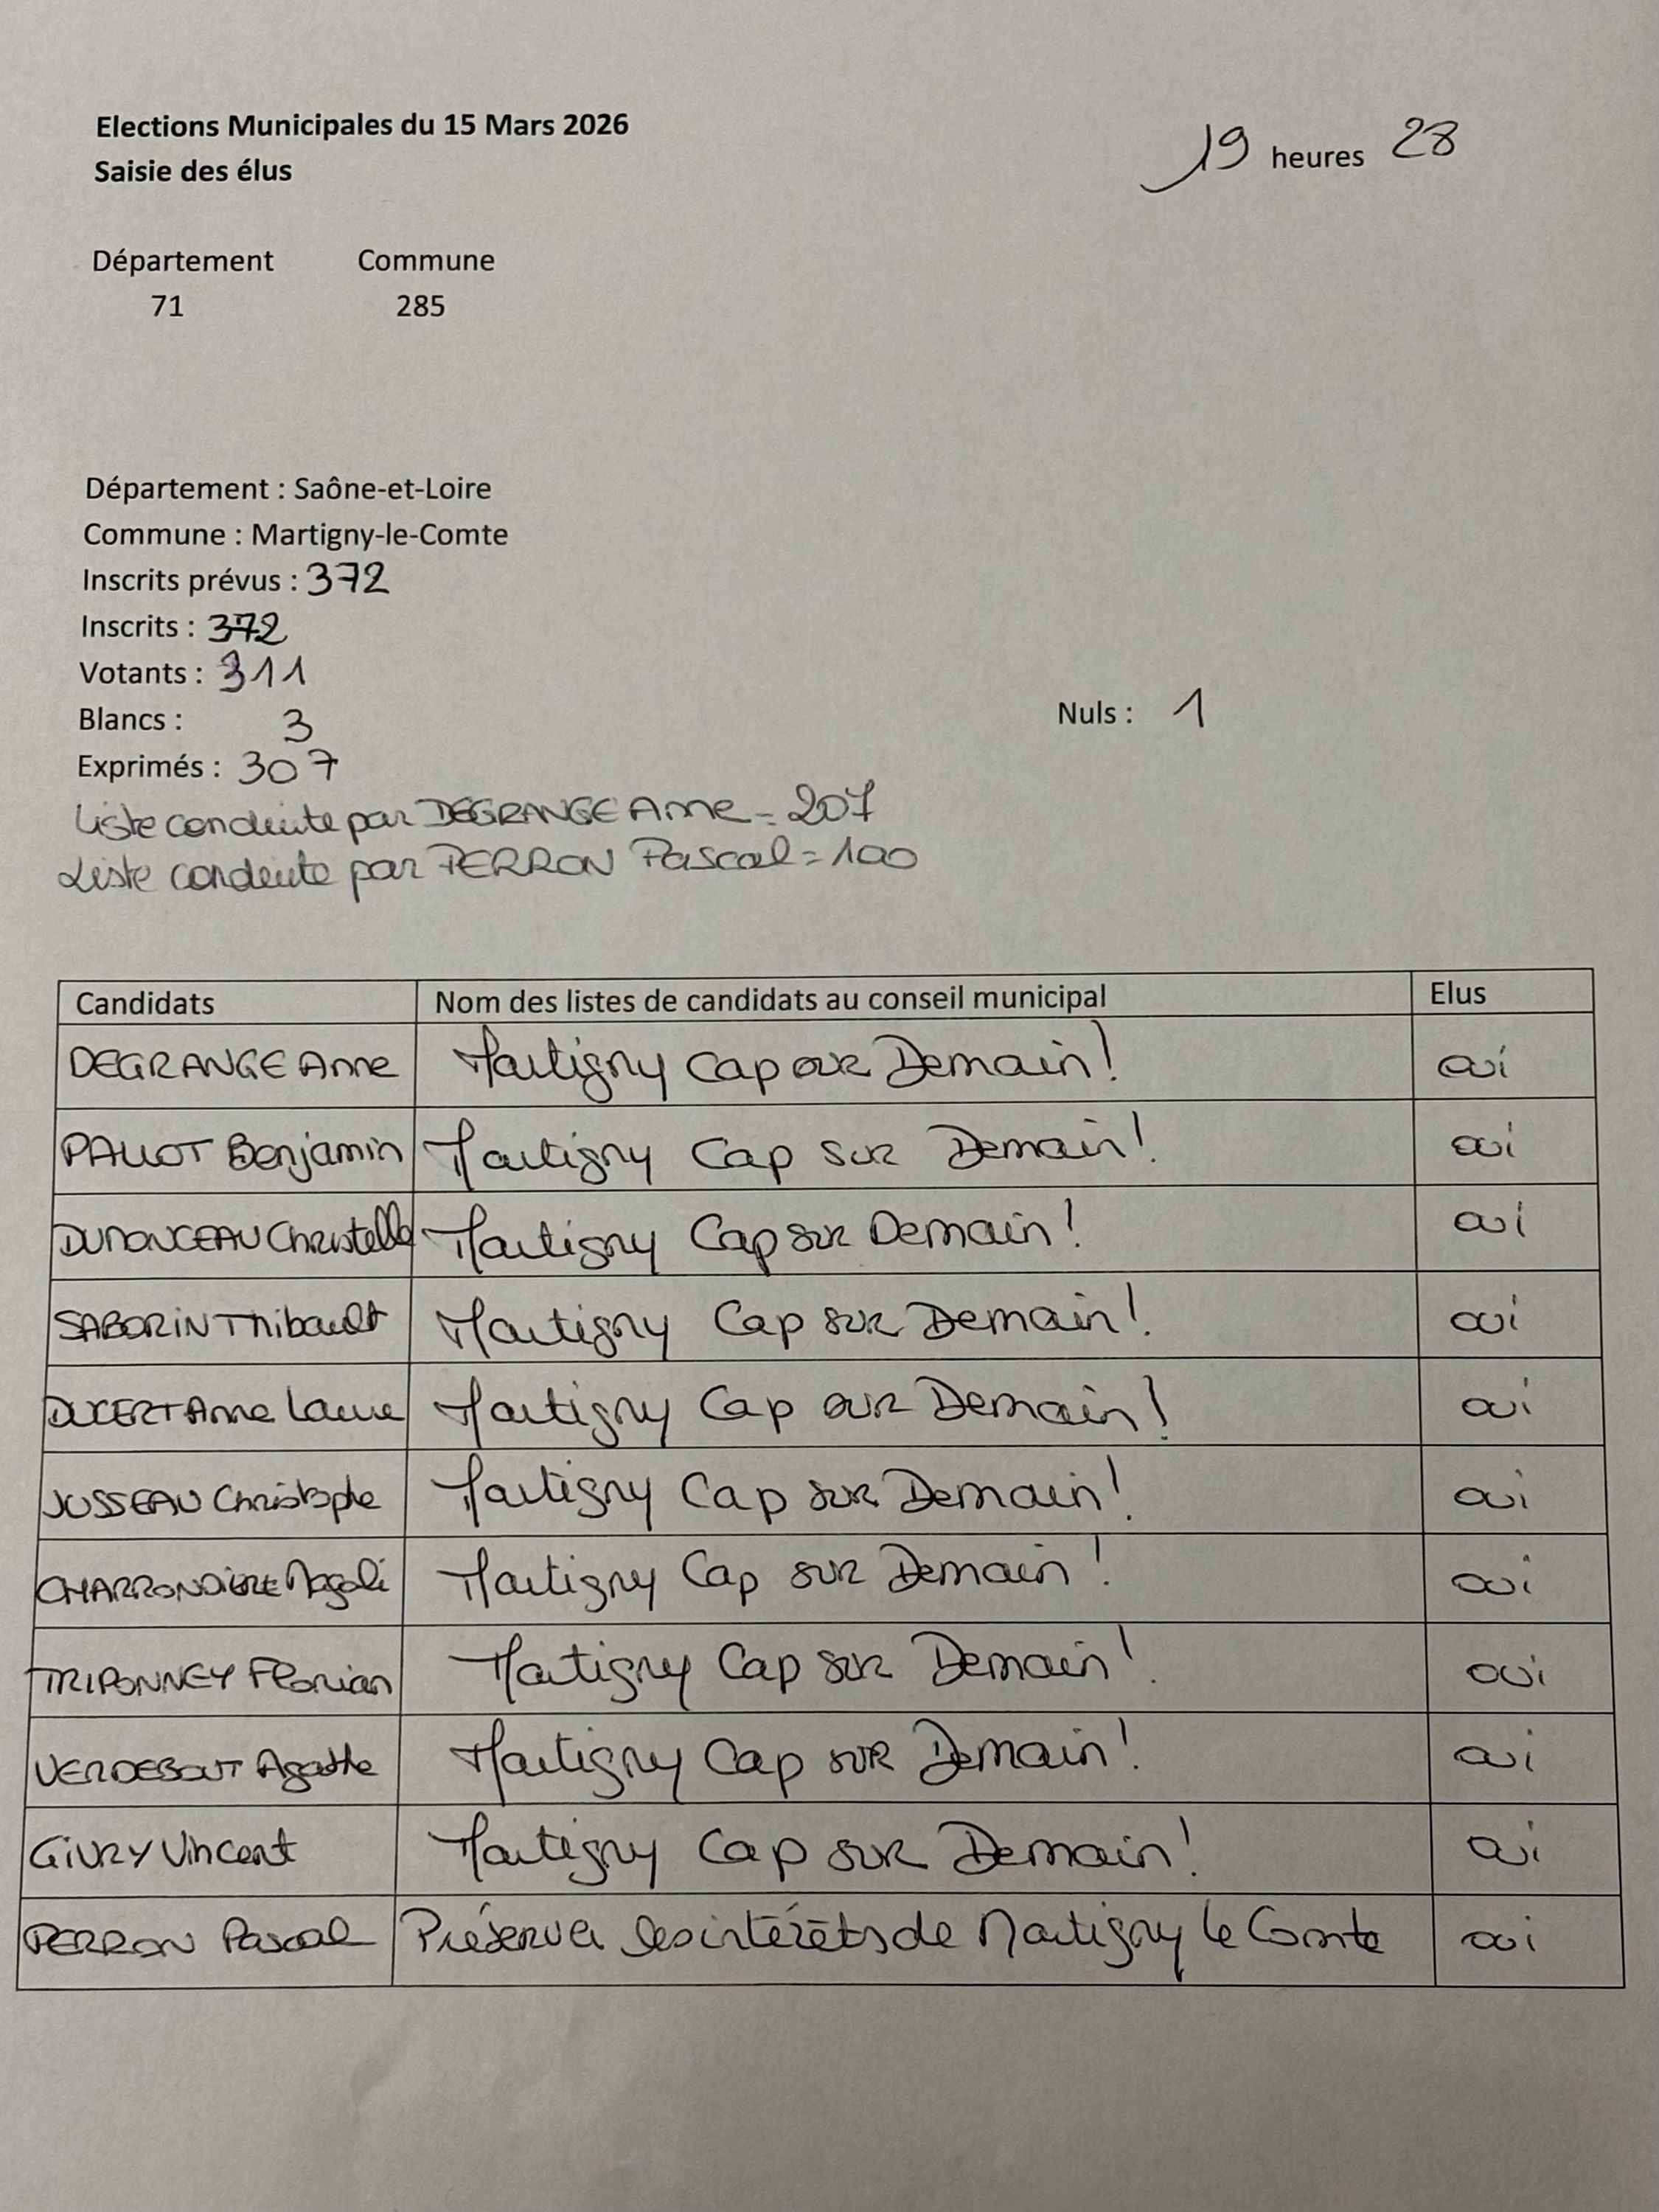 Elections Municipales du 15 Mars 2026
19 heures 28
Saisie des élus
Département Commune
71 285
Département : Saône-et-Loire
Commune : Martigny-le-Comte
Inscrits prévus : 372
Inscrits : 372
Votants : 311
Blancs : 3 Nuls : 1
Exprimés : 307
Liste conduite par DEGRANGE Anne = 207
Liste conduite par PERRON Pascal = 100
Candidats Nom des listes de candidats au conseil municipal Elus
DEGRANGE Anne Martigny Cap sur Demain! oui
PALLOT Benjamin Martigny Cap sur Demain! oui
DUMONCEAU Christelle Martigny Cap sur Demain! oui
SABORIN Thibault Martigny Cap sur Demain! oui
DUCERT Anne Laure Martigny Cap sur Demain! oui
JUSSEAU Christophe Martigny Cap sur Demain! oui
CHARRONDIERE Magali Martigny Cap sur Demain! oui
TRIPONNEY Florian Martigny Cap sur Demain! oui
VERDEBOUT Agathe Martigny Cap sur Demain! oui
GIVRY Vincent Martigny Cap sur Demain! oui
PERRON Pascal Préserver les intérêts de Martigny le Comte oui